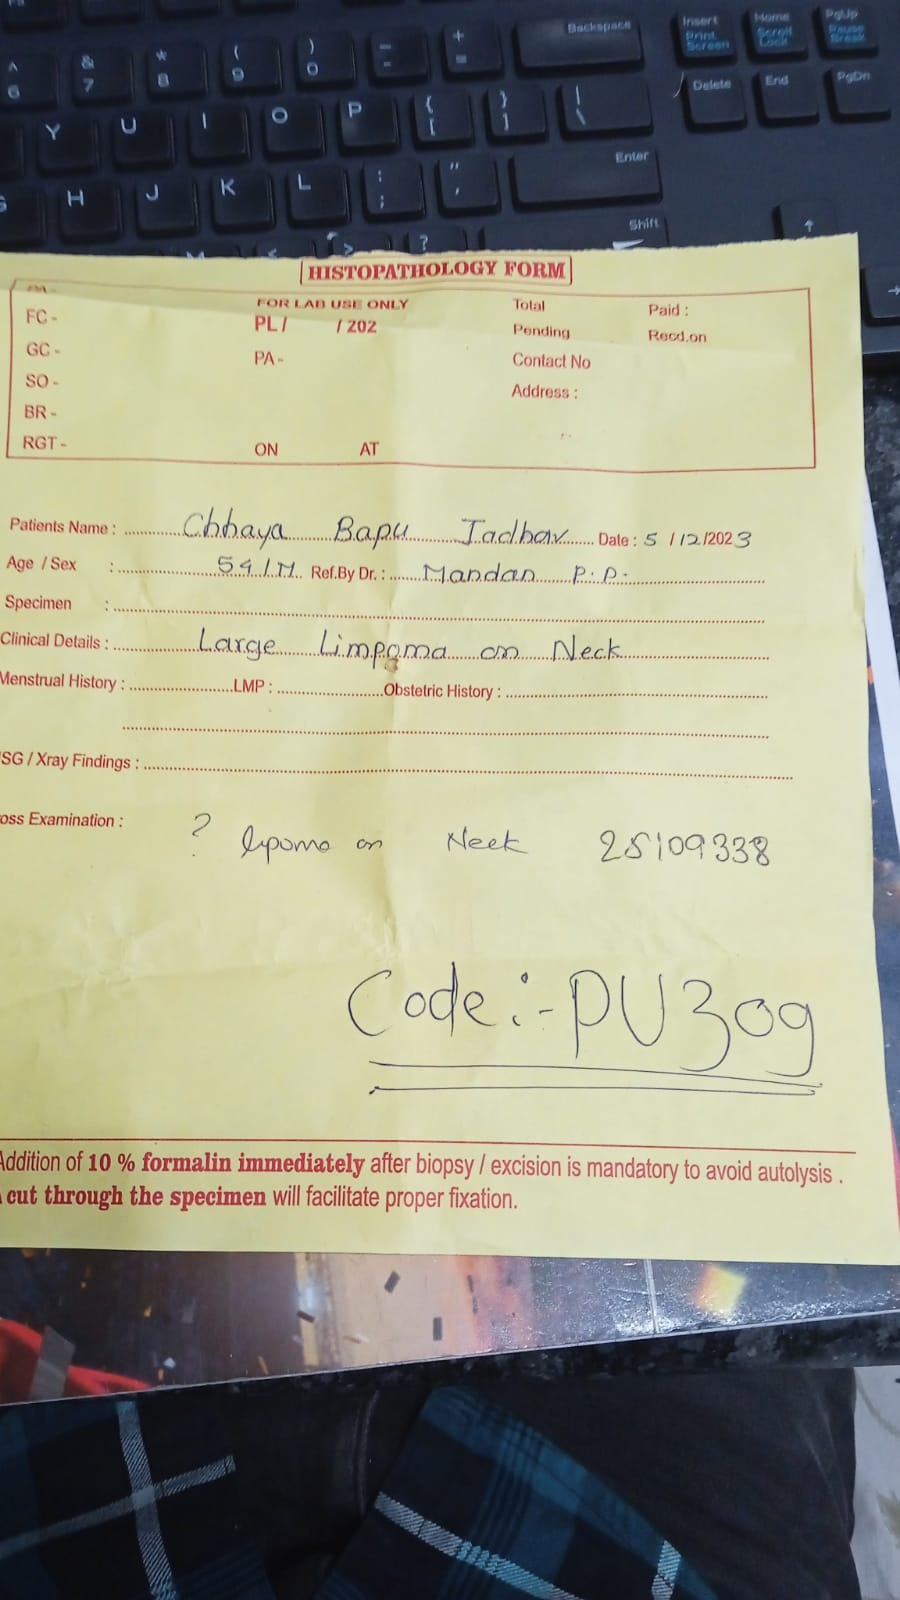 Backspace Insert Home PgUp
Print Screen Scroll Lock Pause Break
^ 6 & 7 * 8 ( 9 ) 0 - - + = Delete End PgDn
Y U I O P { [ } ] | \
H J K L : ; " ' Enter
< > ? Shift
HISTOPATHOLOGY FORM
FOR LAB USE ONLY Total Paid :
FC - PL / / 202 Pending Recd.on
GC - PA - Contact No
SO - Address :
BR -
RGT - ON AT
Patients Name : Chhaya Bapu Jadhav Date : 5 / 12 /2023
Age / Sex : 54 / M Ref.By Dr. : Mandan P. P.
Specimen :
Clinical Details : Large Limpoma on Neck
Menstrual History : LMP : Obstetric History :
SG / Xray Findings :
oss Examination : ? lipoma on Neck 25109338
Code :- PU309
Addition of 10 % formalin immediately after biopsy / excision is mandatory to avoid autolysis .
cut through the specimen will facilitate proper fixation.